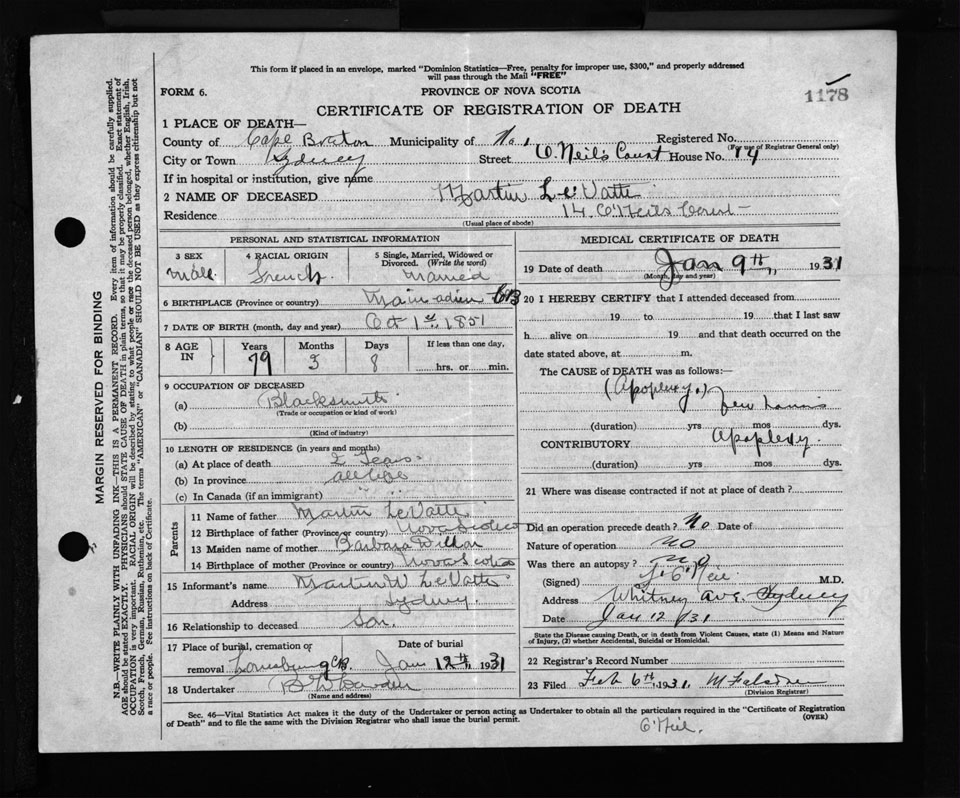 This form if placed in an envelope, marked "Dominion Statistics—Free, penalty for improper use, $300," and properly addressed
will pass through the Mail "FREE"
FORM 6.
PROVINCE OF NOVA SCOTIA
1178
CERTIFICATE OF REGISTRATION OF DEATH
1 PLACE OF DEATH—
County of Cape Breton Municipality of No. 1 Registered No.
(For use of Registrar General only)
City or Town Sydney Street O'Neil's Court House No. 14
If in hospital or institution, give name
2 NAME OF DECEASED Martin Le Vatte
Residence 14 O'Neil's Court
(Usual place of abode)
PERSONAL AND STATISTICAL INFORMATION
3 SEX Male
4 RACIAL ORIGIN French
5 Single, Married, Widowed or Divorced. (Write the word) Married
6 BIRTHPLACE (Province or country) Main-adieu CB
7 DATE OF BIRTH (month, day and year) Oct 1st, 1851
8 AGE IN Years 79 Months 3 Days 8 If less than one day, hrs. or min.
9 OCCUPATION OF DECEASED
(a) Blacksmith
(Trade or occupation or kind of work)
(b)
(Kind of industry)
10 LENGTH OF RESIDENCE (in years and months)
(a) At place of death 2 Years
(b) In province all life
(c) In Canada (if an immigrant) " "
Parents
11 Name of father Martin LeVatte
12 Birthplace of father (Province or country) Nova Scotia
13 Maiden name of mother Barbara
14 Birthplace of mother (Province or country) Nova Scotia
15 Informant's name Martin W LeVatte
Address Sydney.
16 Relationship to deceased Son.
17 Place of burial, cremation or removal Louisburg CB. Date of burial Jan 12th, 1931
18 Undertaker
(Name and address)
MEDICAL CERTIFICATE OF DEATH
19 Date of death Jan 9th, 1931
(Month, day and year)
20 I HEREBY CERTIFY that I attended deceased from
19 to 19 that I last saw
h alive on 19 and that death occurred on the
date stated above, at m.
The CAUSE of DEATH was as follows:—
(Apoplexy.) few hours
(duration) yrs mos dys.
CONTRIBUTORY Apoplexy.
(duration) yrs mos dys.
21 Where was disease contracted if not at place of death?
Did an operation precede death? No Date of
Nature of operation no
Was there an autopsy? no
(Signed) O'Neil M.D.
Address Whitney Ave. Sydney
Date Jan 12/31
State the Disease causing Death, or in death from Violent Causes, state (1) Means and Nature
of Injury, (2) whether Accidental, Suicidal or Homicidal.
22 Registrar's Record Number
23 Filed Feb 6th, 1931,
(Division Registrar)
Sec. 46—Vital Statistics Act makes it the duty of the Undertaker or person acting as Undertaker to obtain all the particulars required in the "Certificate of Registration
of Death" and to file the same with the Division Registrar who shall issue the burial permit.
(OVER)
O'Neil.
MARGIN RESERVED FOR BINDING
N.B.—WRITE PLAINLY WITH UNFADING INK—THIS IS A PERMANENT RECORD. Every item of information should be carefully supplied.
AGE should be stated EXACTLY. PHYSICIANS should STATE CAUSE OF DEATH in plain terms, so that it may be properly classified. Exact statement of
OCCUPATION is very important. RACIAL ORIGIN will be described by stating to what people or race the deceased person belonged, whether English, Irish,
Scotch, French, German, Russian, Ruthenian, etc. The terms "AMERICAN" or "CANADIAN" SHOULD NOT BE USED as they express citizenship but not
a race or people. See instructions on back of Certificate.